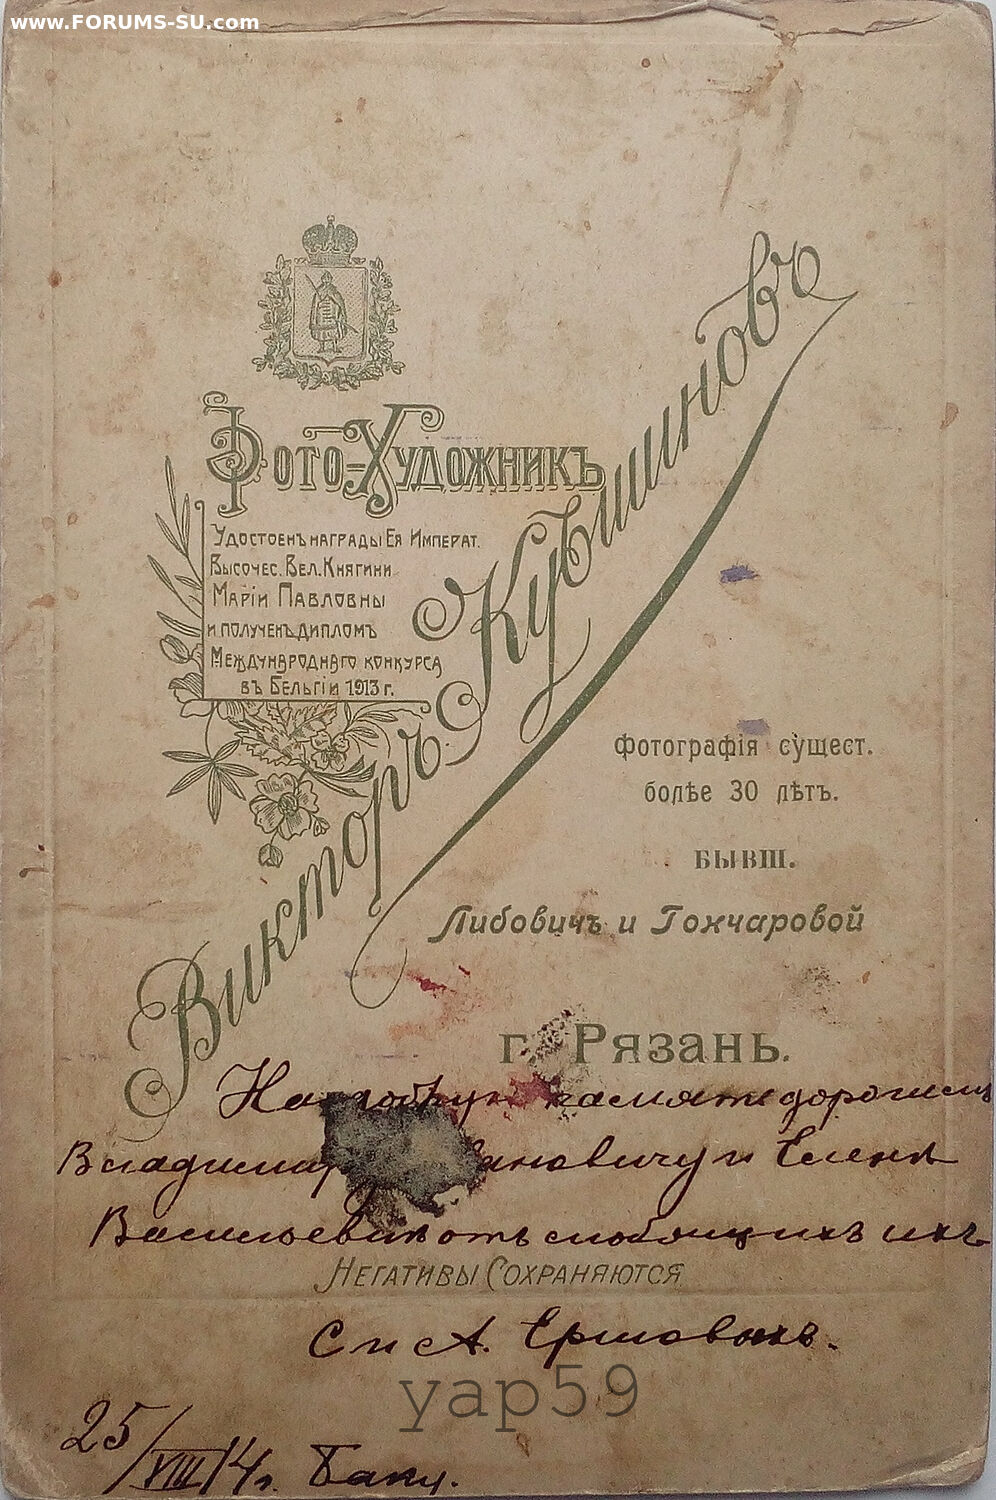 www.FORUMS-SU.com
Фото-Художникъ
Викторъ Кувшиновъ
Удостоенъ награды Ея Императ.
Высочес. Вел. Княгини
Маріи Павловны
и полученъ диплом
Международнаго конкурса
въ Бельгіи 1913 г.
Фотографія сущест.
болѣе 30 лѣтъ.
БЫВШ.
Либовичъ и Гончаровой
г. Рязань.
На добрую память дорогимъ
Владимиру Ивановичу и Еленѣ
Васильевнѣ отъ любящихъ ихъ
Негативы Сохраняются
С и А. Ершовыхъ.
yap59
25/VIII 14 г. Баку.